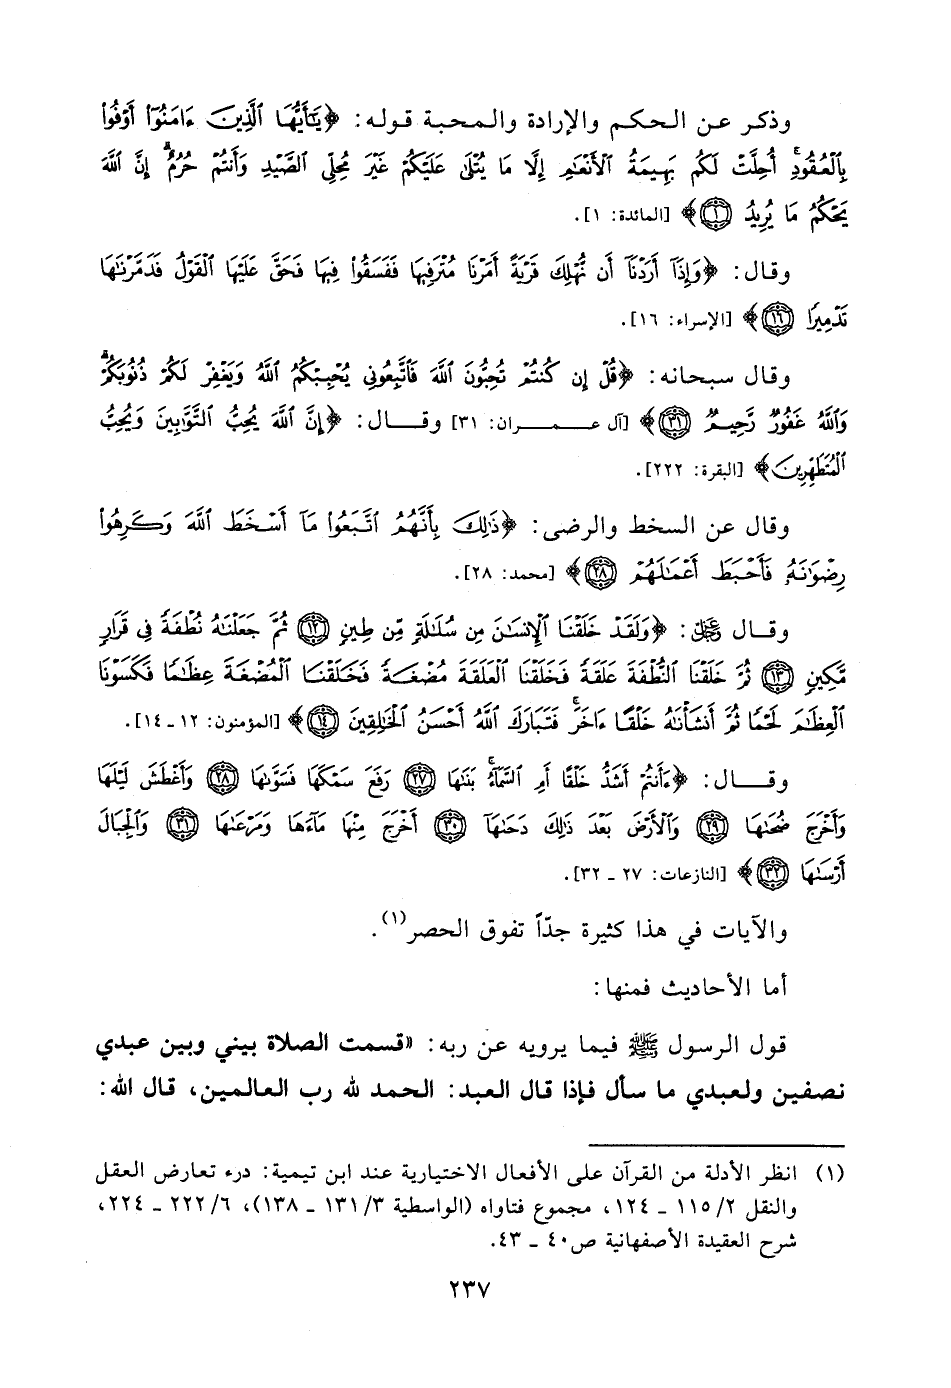 وذكر عن الحكم والإرادة والمحبة قوله: ﴿يَٰٓأَيُّهَا ٱلَّذِينَ ءَامَنُوٓا۟ أَوْفُوا۟
بِٱلْعُقُودِ ۚ أُحِلَّتْ لَكُم بَهِيمَةُ ٱلْأَنْعَٰمِ إِلَّا مَا يُتْلَىٰ عَلَيْكُمْ غَيْرَ مُحِلِّى ٱلصَّيْدِ وَأَنتُمْ حُرُمٌ ۗ إِنَّ ٱللَّهَ
يَحْكُمُ مَا يُرِيدُ ١﴾ [المائدة: ١].
وقال: ﴿وَإِذَآ أَرَدْنَآ أَن نُّهْلِكَ قَرْيَةً أَمَرْنَا مُتْرَفِيهَا فَفَسَقُوا۟ فِيهَا فَحَقَّ عَلَيْهَا ٱلْقَوْلُ فَدَمَّرْنَٰهَا
تَدْمِيرًا ١٦﴾ [الإسراء: ١٦].
وقال سبحانه: ﴿قُلْ إِن كُنتُمْ تُحِبُّونَ ٱللَّهَ فَٱتَّبِعُونِى يُحْبِبْكُمُ ٱللَّهُ وَيَغْفِرْ لَكُمْ ذُنُوبَكُمْ ۗ
وَٱللَّهُ غَفُورٌ رَّحِيمٌ ٣١﴾ [آل عـمـران: ٣١] وقـال: ﴿إِنَّ ٱللَّهَ يُحِبُّ ٱلتَّوَّٰبِينَ وَيُحِبُّ
ٱلْمُتَطَهِّرِينَ﴾ [البقرة: ٢٢٢].
وقال عن السخط والرضى: ﴿ذَٰلِكَ بِأَنَّهُمُ ٱتَّبَعُوا۟ مَآ أَسْخَطَ ٱللَّهَ وَكَرِهُوا۟
رِضْوَٰنَهُۥ فَأَحْبَطَ أَعْمَٰلَهُمْ ٢٨﴾ [محمد: ٢٨].
وقـال ﷻ: ﴿وَلَقَدْ خَلَقْنَا ٱلْإِنسَٰنَ مِن سُلَٰلَةٍ مِّن طِينٍ ١٢ ثُمَّ جَعَلْنَٰهُ نُطْفَةً فِى قَرَارٍ
مَّكِينٍ ١٣ ثُمَّ خَلَقْنَا ٱلنُّطْفَةَ عَلَقَةً فَخَلَقْنَا ٱلْعَلَقَةَ مُضْغَةً فَخَلَقْنَا ٱلْمُضْغَةَ عِظَٰمًا فَكَسَوْنَا
ٱلْعِظَٰمَ لَحْمًا ثُمَّ أَنشَأْنَٰهُ خَلْقًا ءَاخَرَ ۚ فَتَبَارَكَ ٱللَّهُ أَحْسَنُ ٱلْخَٰلِقِينَ ١٤﴾ [المؤمنون: ١٢ - ١٤].
وقـال: ﴿ءَأَنتُمْ أَشَدُّ خَلْقًا أَمِ ٱلسَّمَآءُ ۚ بَنَىٰهَا ٢٧ رَفَعَ سَمْكَهَا فَسَوَّىٰهَا ٢٨ وَأَغْطَشَ لَيْلَهَا
وَأَخْرَجَ ضُحَىٰهَا ٢٩ وَٱلْأَرْضَ بَعْدَ ذَٰلِكَ دَحَىٰهَآ ٣٠ أَخْرَجَ مِنْهَا مَآءَهَا وَمَرْعَىٰهَا ٣١ وَٱلْجِبَالَ
أَرْسَىٰهَا ٣٢﴾ [النازعات: ٢٧ - ٣٢].
والآيات في هذا كثيرة جدّاً تفوق الحصر(١).
أما الأحاديث فمنها:
قول الرسول ﷺ فيما يرويه عن ربه: «قسمت الصلاة بيني وبين عبدي
نصفين ولعبدي ما سأل فإذا قال العبد: الحمد لله رب العالمين، قال الله:
(١) انظر الأدلة من القرآن على الأفعال الاختيارية عند ابن تيمية: درء تعارض العقل
والنقل ٢/ ١١٥ - ١٢٤، مجموع فتاواه (الواسطية ٣/ ١٣١ - ١٣٨)، ٦/ ٢٢٢ - ٢٢٤،
شرح العقيدة الأصفهانية ص٤٠ - ٤٣.
٢٣٧